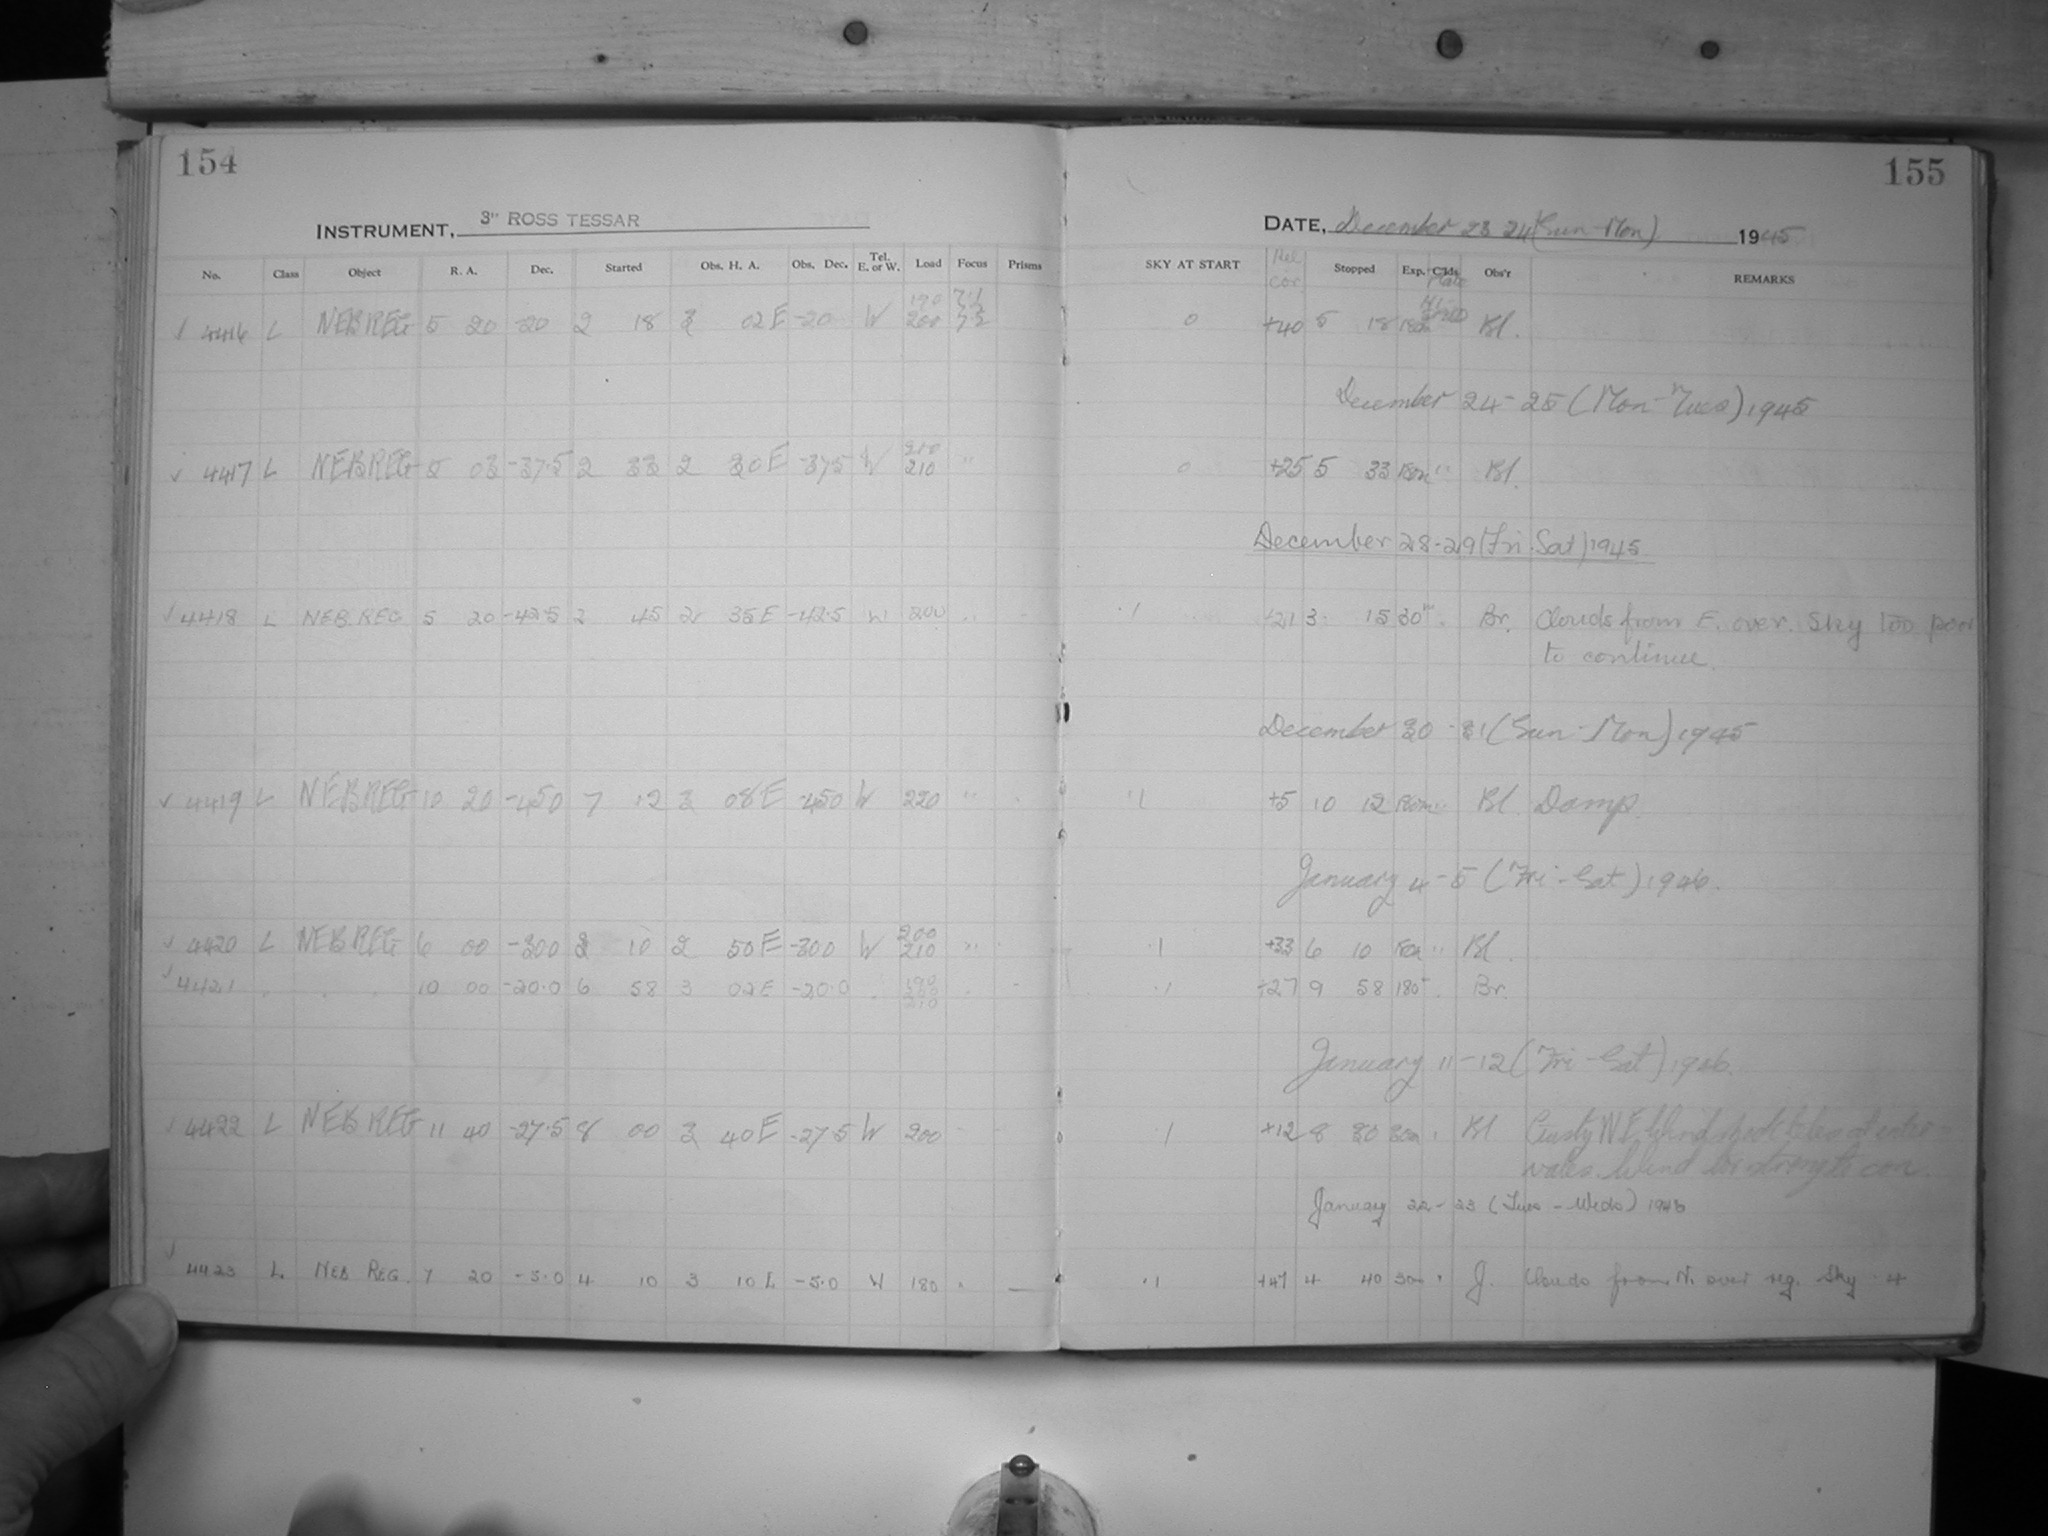 154
155
INSTRUMENT, 3" ROSS TESSAR
DATE, December 23 24 (Sun-Mon) 1945
No. Class Object R. A. Dec. Started Obs. H. A. Obs. Dec. Tel. E. or W. Load Focus Prisms SKY AT START Hel cor. Stopped Exp. Clds. Obs'r REMARKS
✓ 4416 L NEB REG 5 20 -20 2 18 3 02 E -20 W 190 200 7.1 7.2 0 +40 5 18 180m Bl.
December 24-25 (Mon-Tues) 1945
✓ 4417 L NEB REG 5 03 -37.5 2 33 2 30 E -37.5 W 210 210 " 0 +25 5 33 180m " Bl.
December 28-29 (Fri-Sat) 1945
✓ 4418 L NEB. REG 5 20 -42.5 2 45 2 35 E -42.5 W 200 " - .1 +21 3 15 30m " Br. Clouds from E. over. Sky too poor
to continue.
December 30-31 (Sun-Mon) 1945
✓ 4419 L NEB REG 10 20 -45.0 7 12 3 08 E -45.0 W 220 " - .1 +5 10 12 180m " Bl. Damp.
January 4-5 (Fri-Sat) 1946.
✓ 4420 L NEB REG 6 00 -30.0 3 10 2 50 E -30.0 W 200 210 " - .1 +33 6 10 180m " Bl.
✓ 4421 " " 10 00 -20.0 6 58 3 02 E -20.0 " 190 210 " - .1 +27 9 58 180m " Br.
January 11-12 (Fri-Sat) 1946.
✓ 4422 L NEB REG 11 40 -27.5 8 00 3 40 E -27.5 W 200 - - .1 +12 8 30 30m " Bl Gusty N.E. Wind at inter-
vals. Wind too strong to con.
January 22-23 (Tues-Weds) 1946
✓ 4423 L. NEB REG. 7 20 -5.0 4 10 3 10 E -5.0 W 180 " — .1 +47 4 40 30m " J. Clouds from N. over reg. Sky .4